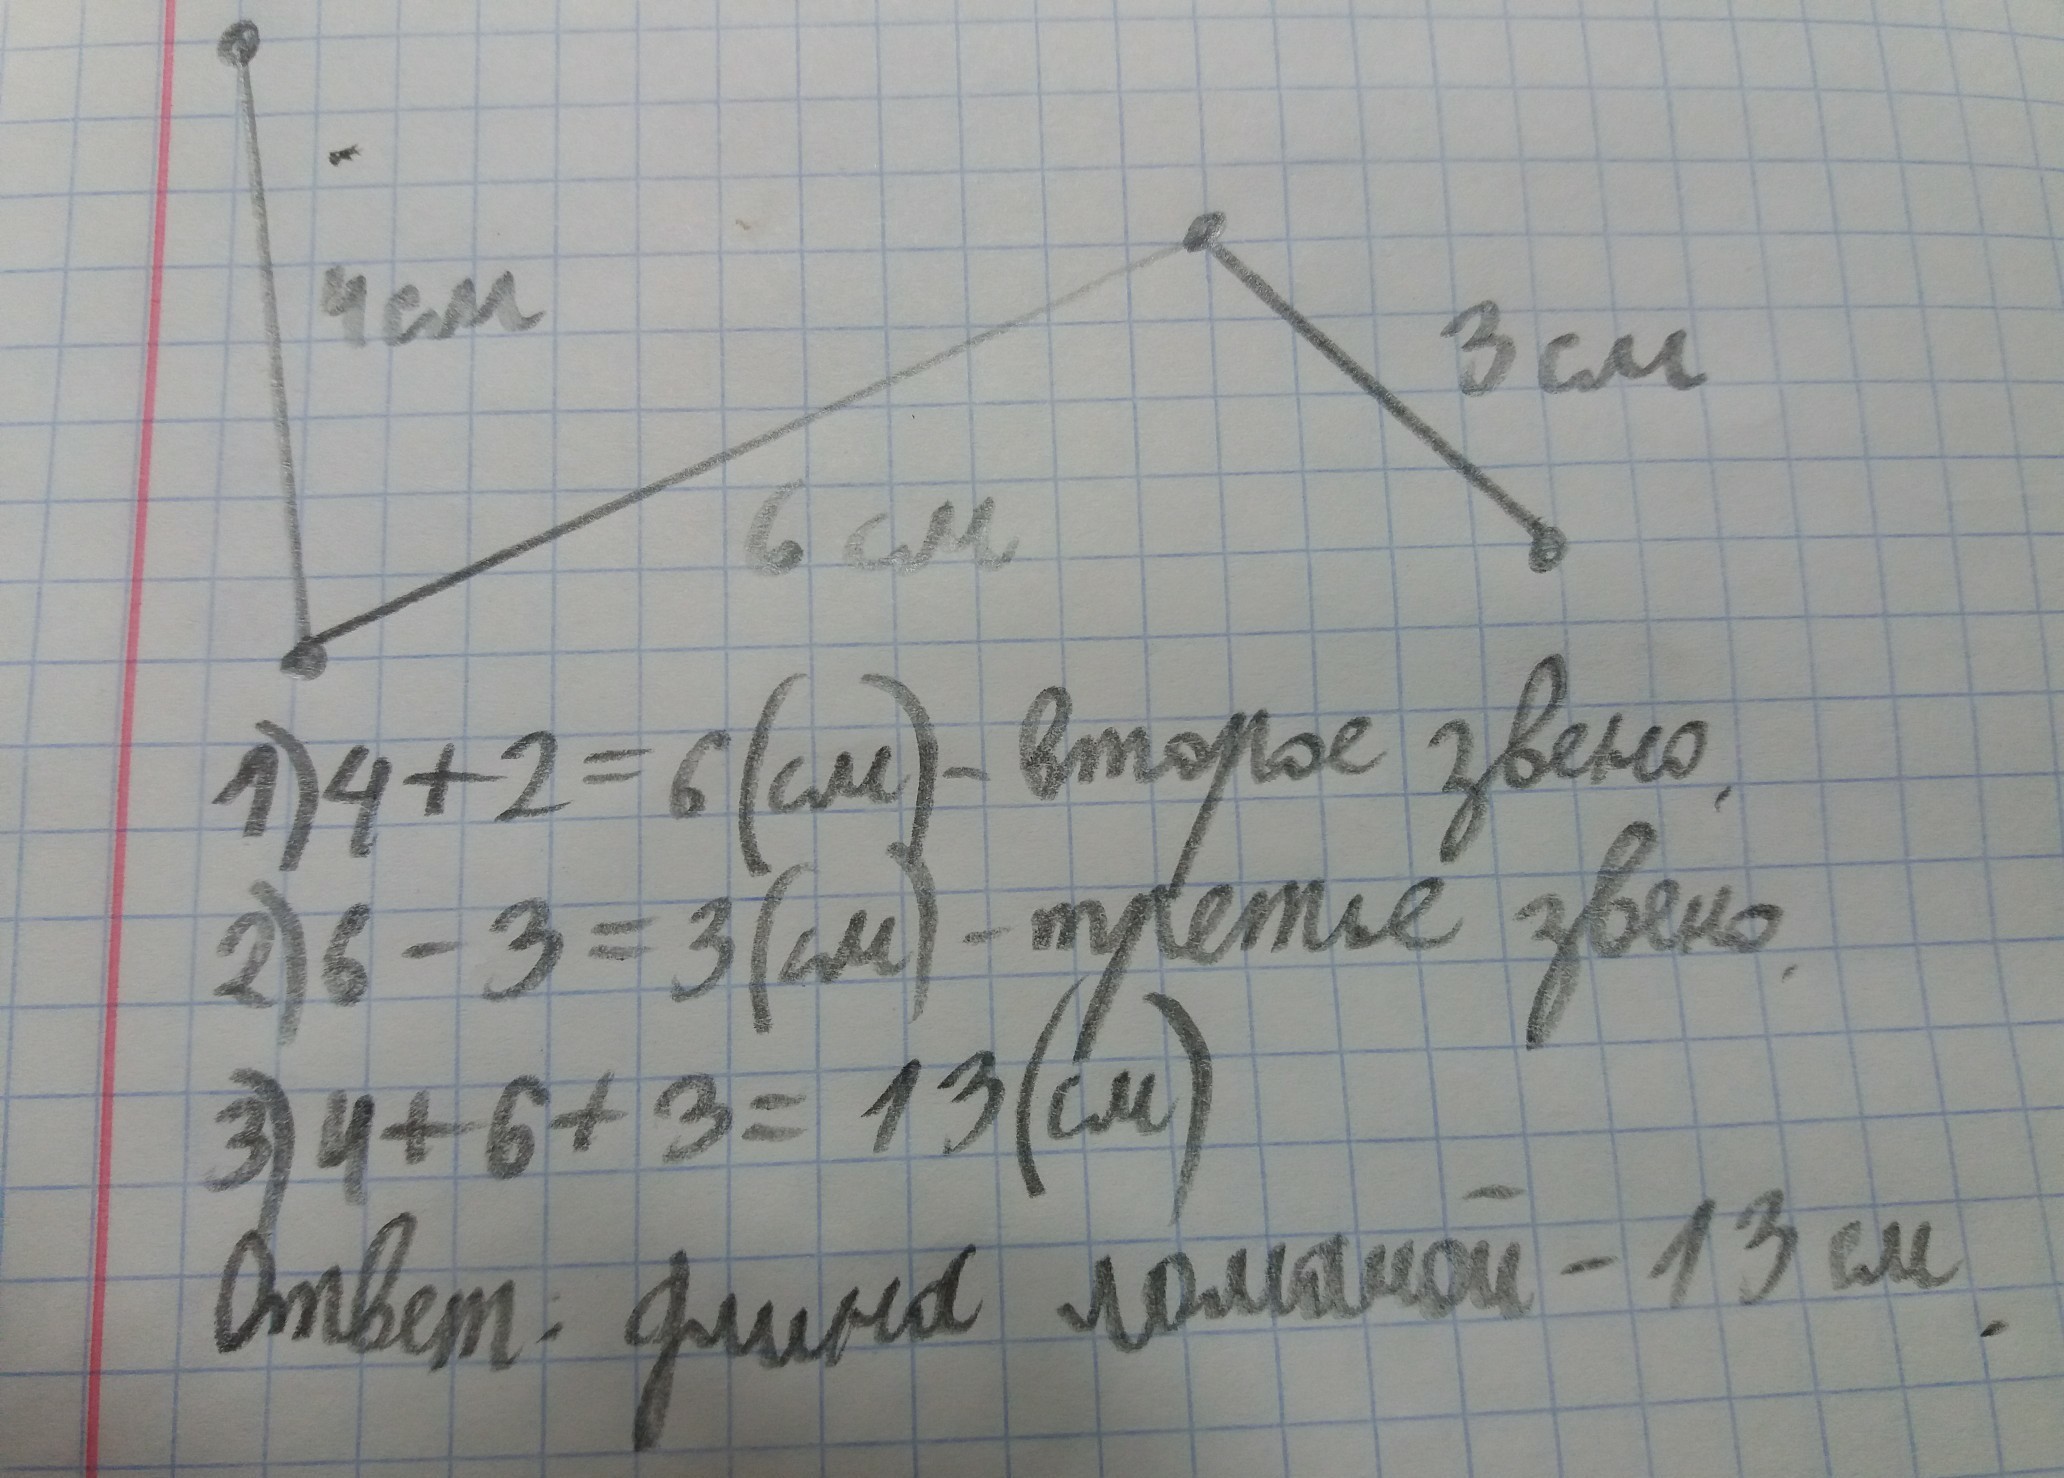 4см
3см
6 см
1) 4+2=6(см) - второе звено.
2) 6-3=3(см) - третье звено.
3) 4+6+3=13(см)
Ответ: длина ломаной - 13 см.